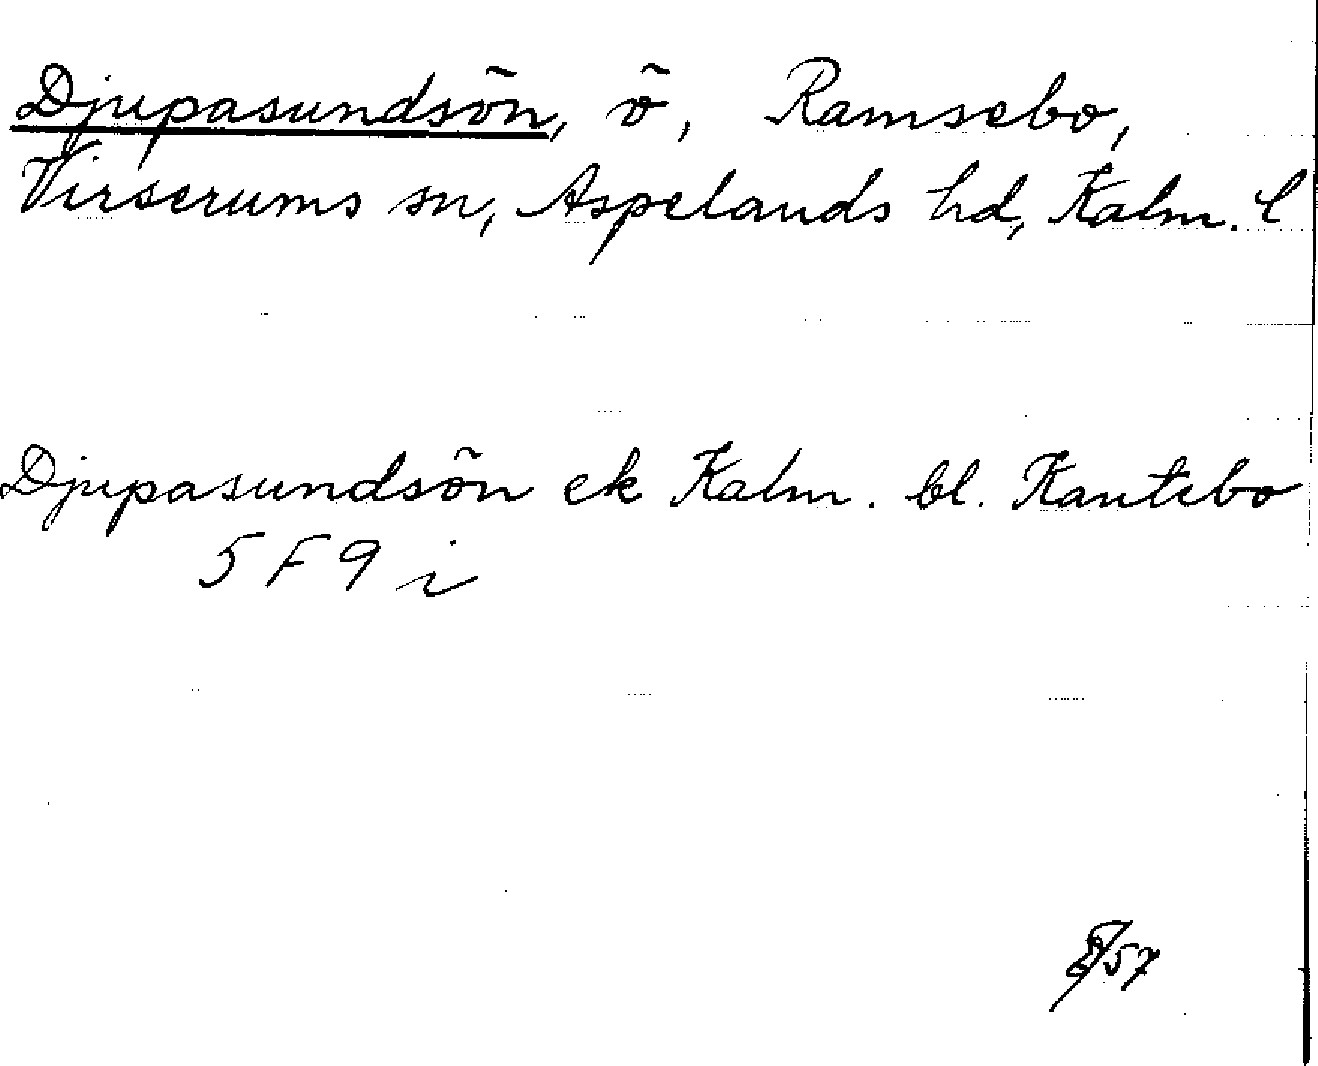 Djupasundsön, ö, Ramsebo,
Virserums sn, Aspelands hd, Kalm. l
Djupasundsön ek Kalm. bl. Kantebo
5 F 9 i
/57